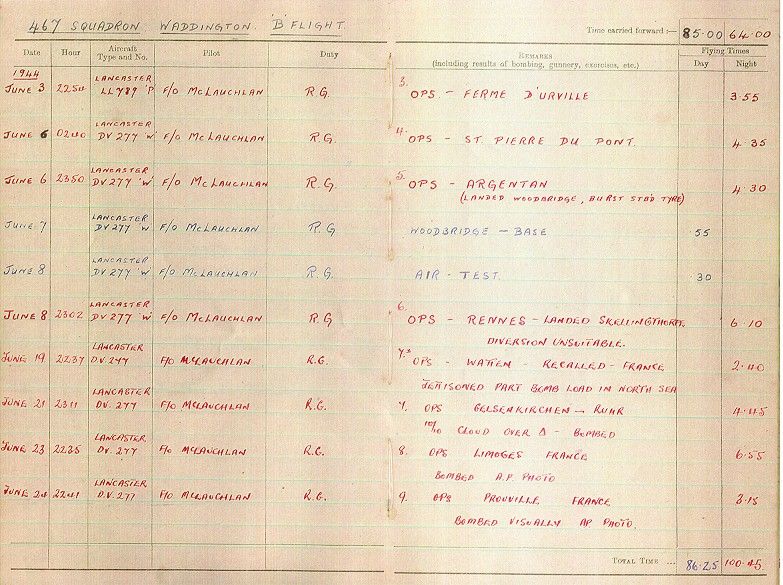 467 SQUADRON WADDINGTON. B FLIGHT.
Time carried forward :— 85.00 64.00
Date Hour Aircraft Type and No. Pilot Duty REMARKS (including results of bombing, gunnery, exercises, etc.) Flying Times Day Night
1944
JUNE 3 2254 LANCASTER LL789 'P F/O McLAUCHLAN R.G. 3. OPS - FERME D'URVILLE 3.55
JUNE 6 0240 LANCASTER DV 277 'W F/O McLAUCHLAN R.G. 4. OPS - ST. PIERRE DU PONT. 4.35
JUNE 6 2350 LANCASTER DV 277 'W' F/O McLAUCHLAN R.G. 5. OPS - ARGENTAN 4.30
(LANDED WOODBRIDGE, BURST STB'D TYRE)
JUNE 7 LANCASTER DV 277 'W F/O McLAUCHLAN R.G WOODBRIDGE - BASE 55
JUNE 8 LANCASTER DV 277 'W F/O McLAUCHLAN R.G. AIR - TEST. 30
JUNE 8 2302 LANCASTER DV 277 'W' F/O McLAUCHLAN R.G 6. OPS - RENNES - LANDED SKELLINGTHORPE. 6.10
DIVERSION UNSUITABLE.
JUNE 19 2237 LANCASTER D.V. 247 F/O McLAUCHLAN R.G. 7.* OPS - WATTEN - RECALLED - FRANCE 2.40
JETISONED PART BOMB LOAD IN NORTH SEA
JUNE 21 2311 LANCASTER DV. 277 F/O McLAUCHLAN R.G. 7. OPS GELSENKIRCHEN - RUHR 4.45
10/10 CLOUD OVER Δ - BOMBED
JUNE 23 2235 LANCASTER DV. 277 F/O McLAUCHLAN R.G. 8. OPS LIMOGES FRANCE 6.55
BOMBED A.P. PHOTO
JUNE 24 2241 LANCASTER D.V. 277 F/O McLAUCHLAN R.G. 9. OPS PROUVILLE FRANCE 3.15
BOMBED VISUALLY AP PHOTO.
TOTAL TIME ... 86.25 100.45